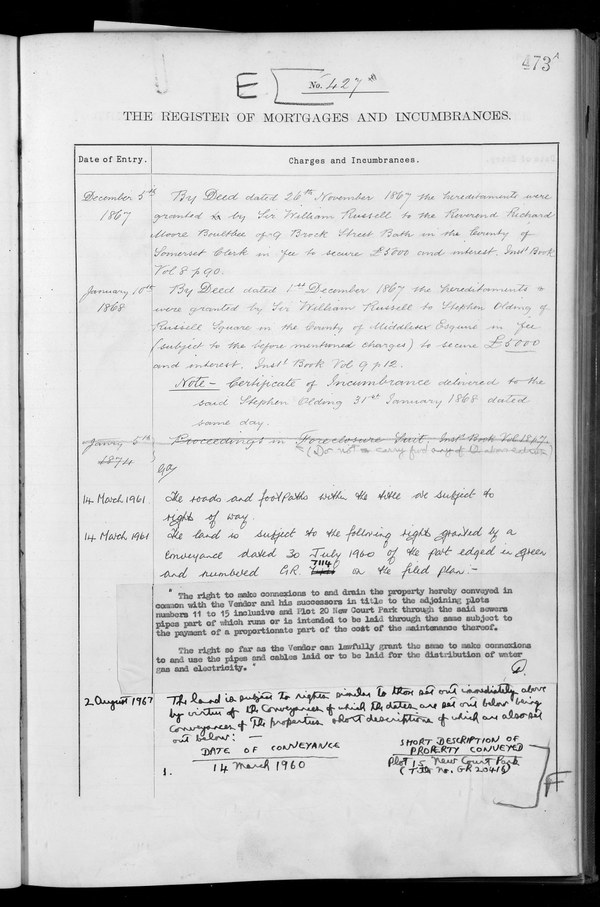 473A
E
No. 427
THE REGISTER OF MORTGAGES AND INCUMBRANCES.
Date of Entry.
Charges and Incumbrances.
December 5th
1867
By Deed dated 26th November 1867 the hereditaments were
granted by Sir William Russell to the Reverend Richard
Moore Boultbee of 9 Brock Street Bath in the County of
Somerset Clerk in fee to secure £5000 and interest. Inst Book
Vol 8 p 90.
January 10th
1868
By Deed dated 1st December 1867 the hereditaments
were granted by Sir William Russell to Stephen Olding of
Russell Square in the County of Middlesex Esquire in fee
(subject to the before mentioned charges) to secure £5000
and interest. Instt Book Vol 9 p 12.
Note – Certificate of Incumbrance delivered to the
said Stephen Olding 31st January 1868 dated
same day.
Janry 5th
1874
Proceedings in Foreclosure Suit, Inst Book Vol 18 p 7.
(Do not carry forward
14 March 1961.
The roads and footpaths within the title are subject to
rights of way.
14 March 1961
The land is subject to the following rights granted by a
Conveyance dated 30 July 1960 of the part edged in green
and numbered GR. 7114 on the filed plan:–
" The right to make connexions to and drain the property hereby conveyed in
common with the Vendor and his successors in title to the adjoining plots
numbers 11 to 15 inclusive and Plot 20 New Court Park through the said sewers
pipes part of which runs or is intended to be laid through the same subject to
the payment of a proportionate part of the cost of the maintenance thereof.
The right so far as the Vendor can lawfully grant the same to make connexions
to and use the pipes and cables laid or to be laid for the distribution of water
gas and electricity. "
2 August 1967
The land is subject to rights similar to those set out immediately above
by virtue of the Conveyances of which the dates are set out below being
Conveyances of the properties short descriptions of which are also set
out below: —
DATE OF CONVEYANCE
SHORT DESCRIPTION OF
PROPERTY CONVEYED
1. 14 March 1960
Plot 15 New Court Park
(Title No. GR 20416)
F